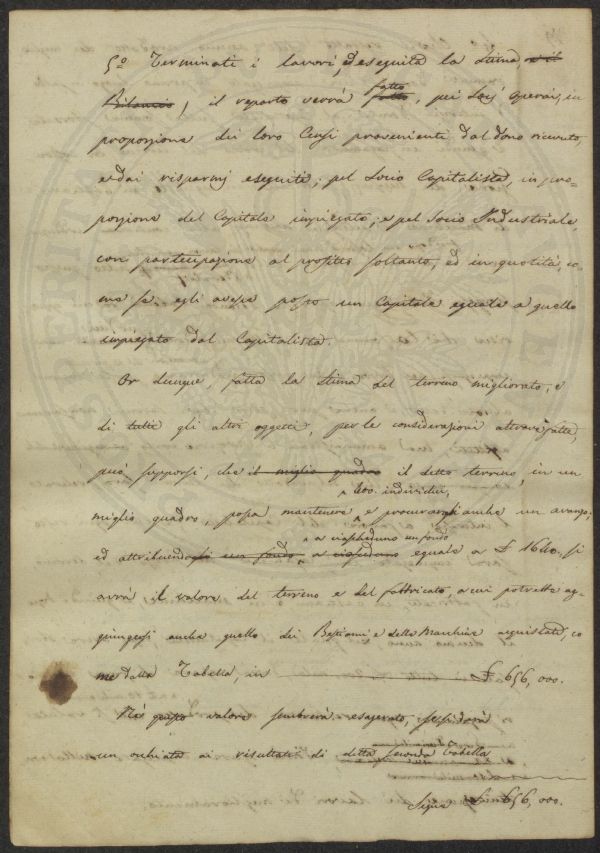 5.º Terminati i lavori, ed eseguita la Stima e il
Bilancio, il reparto verrà fatto, pei Socj Operai, in
proporzione dei loro Censi proveniente dal dono ricevuto,
e dai risparmj eseguiti; pel Socio Capitalista, in pro=
porzione del Capitale impiegato, e pel Socio Industriale,
con partecipazione al profitto soltanto, ed in quotità, co
me se egli avesse posto un Capitale eguale a quello
impiegato dal Capitalista.
Or dunque, fatta la stima del terreno migliorato, e
di tutti gli altri oggetti, per le considerazioni altrove fatte,
può supporsi, che il miglio quadro il detto terreno, in un
400. individui,
miglio quadro, possa mantenere e procurargli anche un avanzo;
a ciascheduno un fondo
ed attribuendo un fondo a ciascheduno eguale a £ 1640., si
avrà, il valore del terreno e del fabbricato, a cui potrebbe ag
giungersi anche quello dei Bestiami e delle Macchine acquistate, co
me dalla Tabella, in £ 656,000.
Nè questo valore sembrerà esagerato, se si darà
un occhiata ai risultati di detta seconda Tabella
Segue £ 656,000.